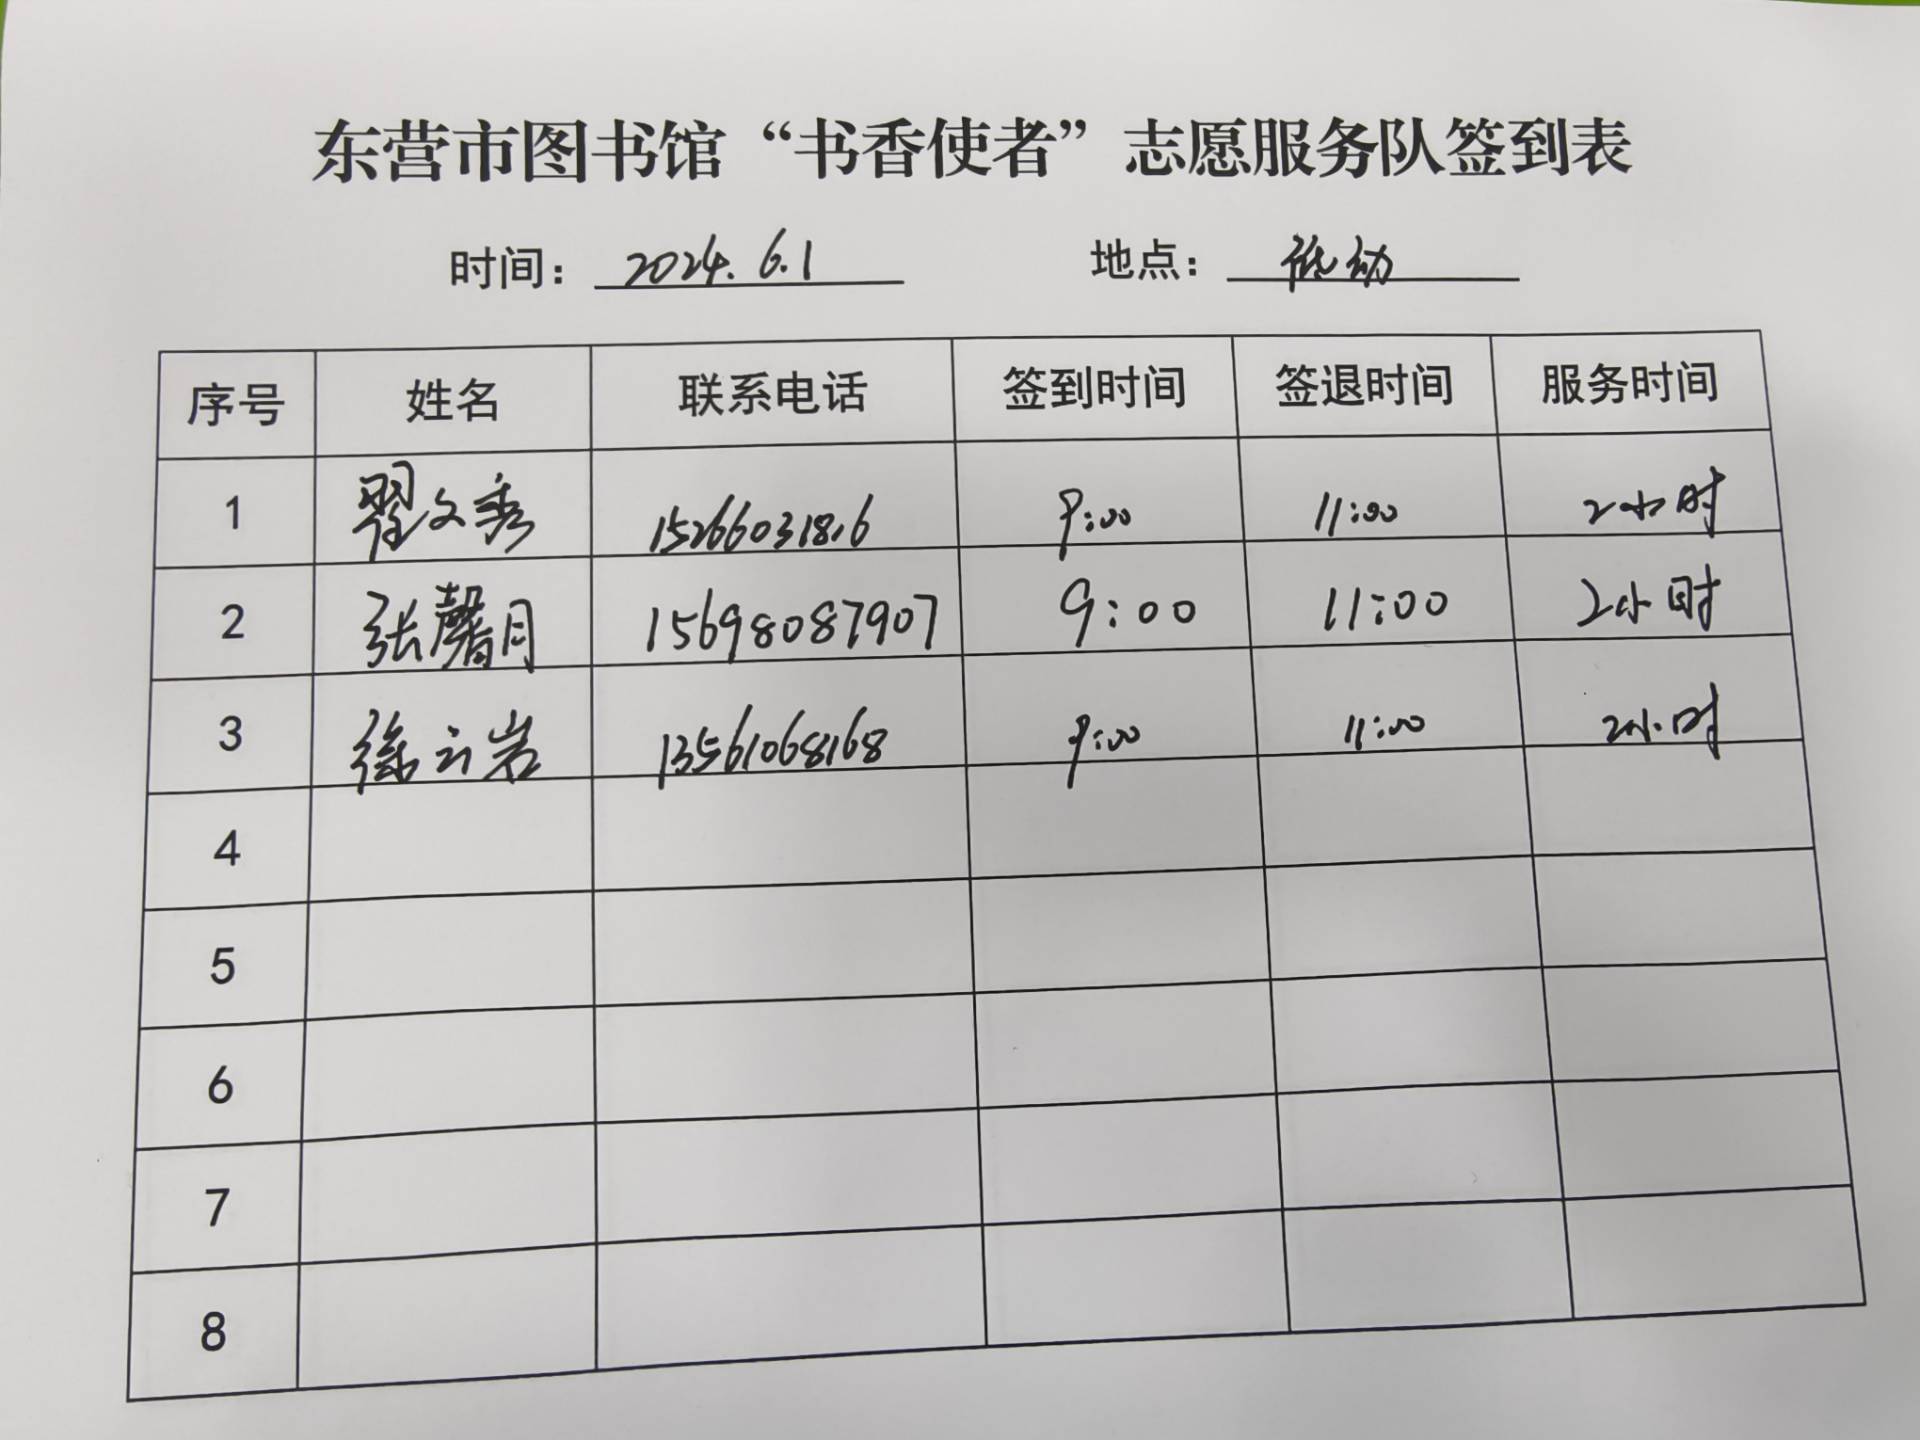 东营市图书馆“书香使者”志愿服务队签到表
时间： 2024.6.1 地点： 低幼
序号 姓名 联系电话 签到时间 签退时间 服务时间
1 翟文秀 15266031816 9:00 11:00 2小时
2 张馨月 15698087907 9:00 11:00 2小时
3 徐云岩 13561068168 9:00 11:00 2小时
4
5
6
7
8